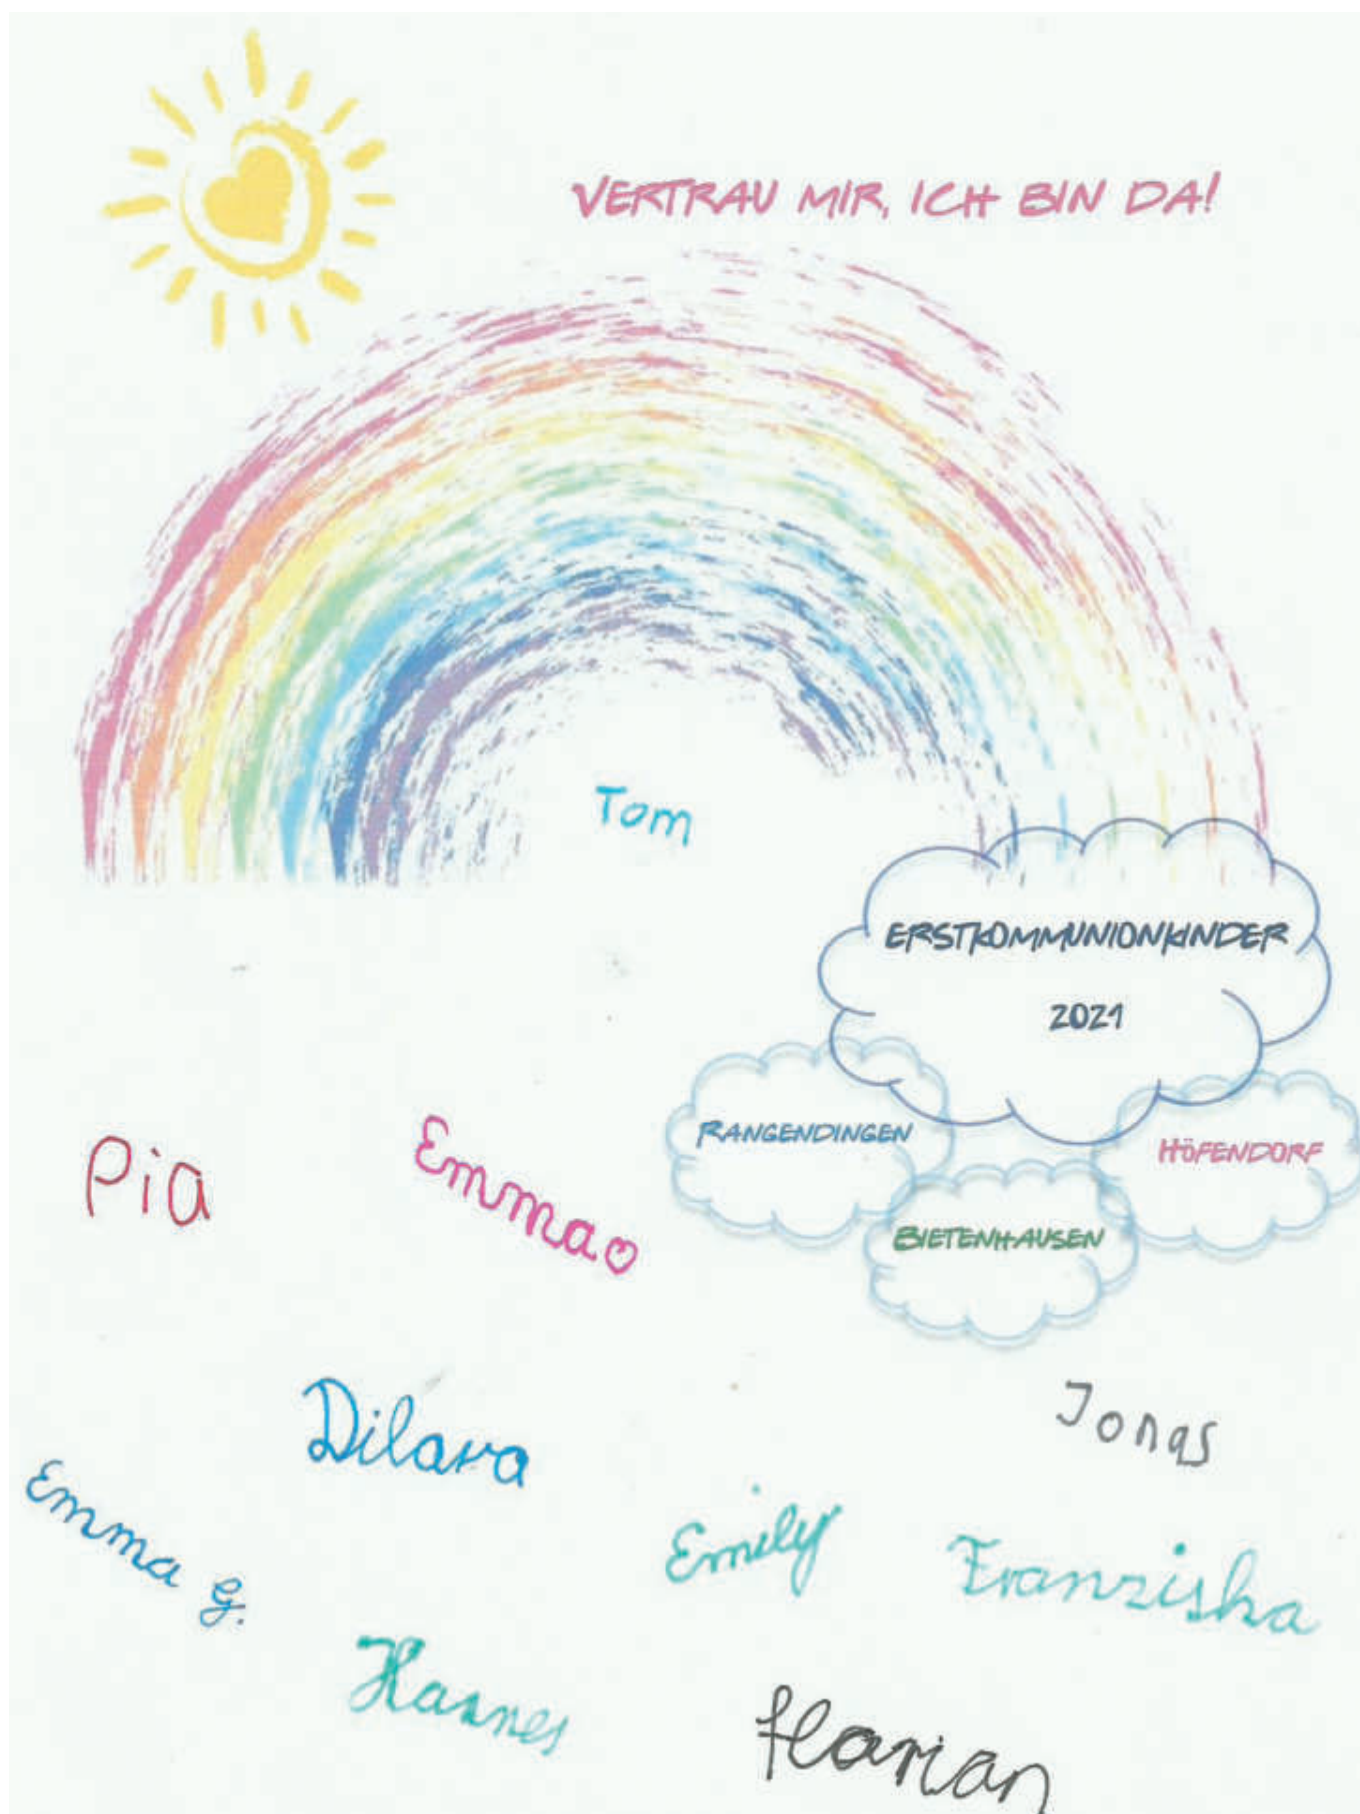 VERTRAU MIR, ICH BIN DA!
Tom
ERSTKOMMUNIONKINDER
2021
RANGENDINGEN
HÖFENDORF
BIETENHAUSEN
Pia
Emma
Dilara
Jonas
Emma G.
Emily
Franziska
Hannes
Florian